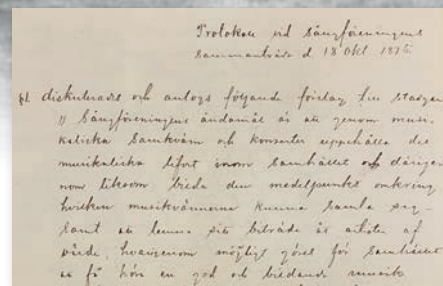 Protokoll vid Sångföreningens
sammanträde d. 18 Okt. 18
diskuterades och antogs följande förslag till stadgar
1/ Sångföreningens ändamål är att genom musi-
kaliska samkväm och konserter uppehålla det
musikaliska lifvet inom samhället och därige-
nom liksom bilda den medelpunkt omkring
hvilken musikvännerna kunna samla sig
samt att lemna sitt biträde åt artister af
värde, hvarigenom möjligt göres för samhället
att få höra en god och bildande musik